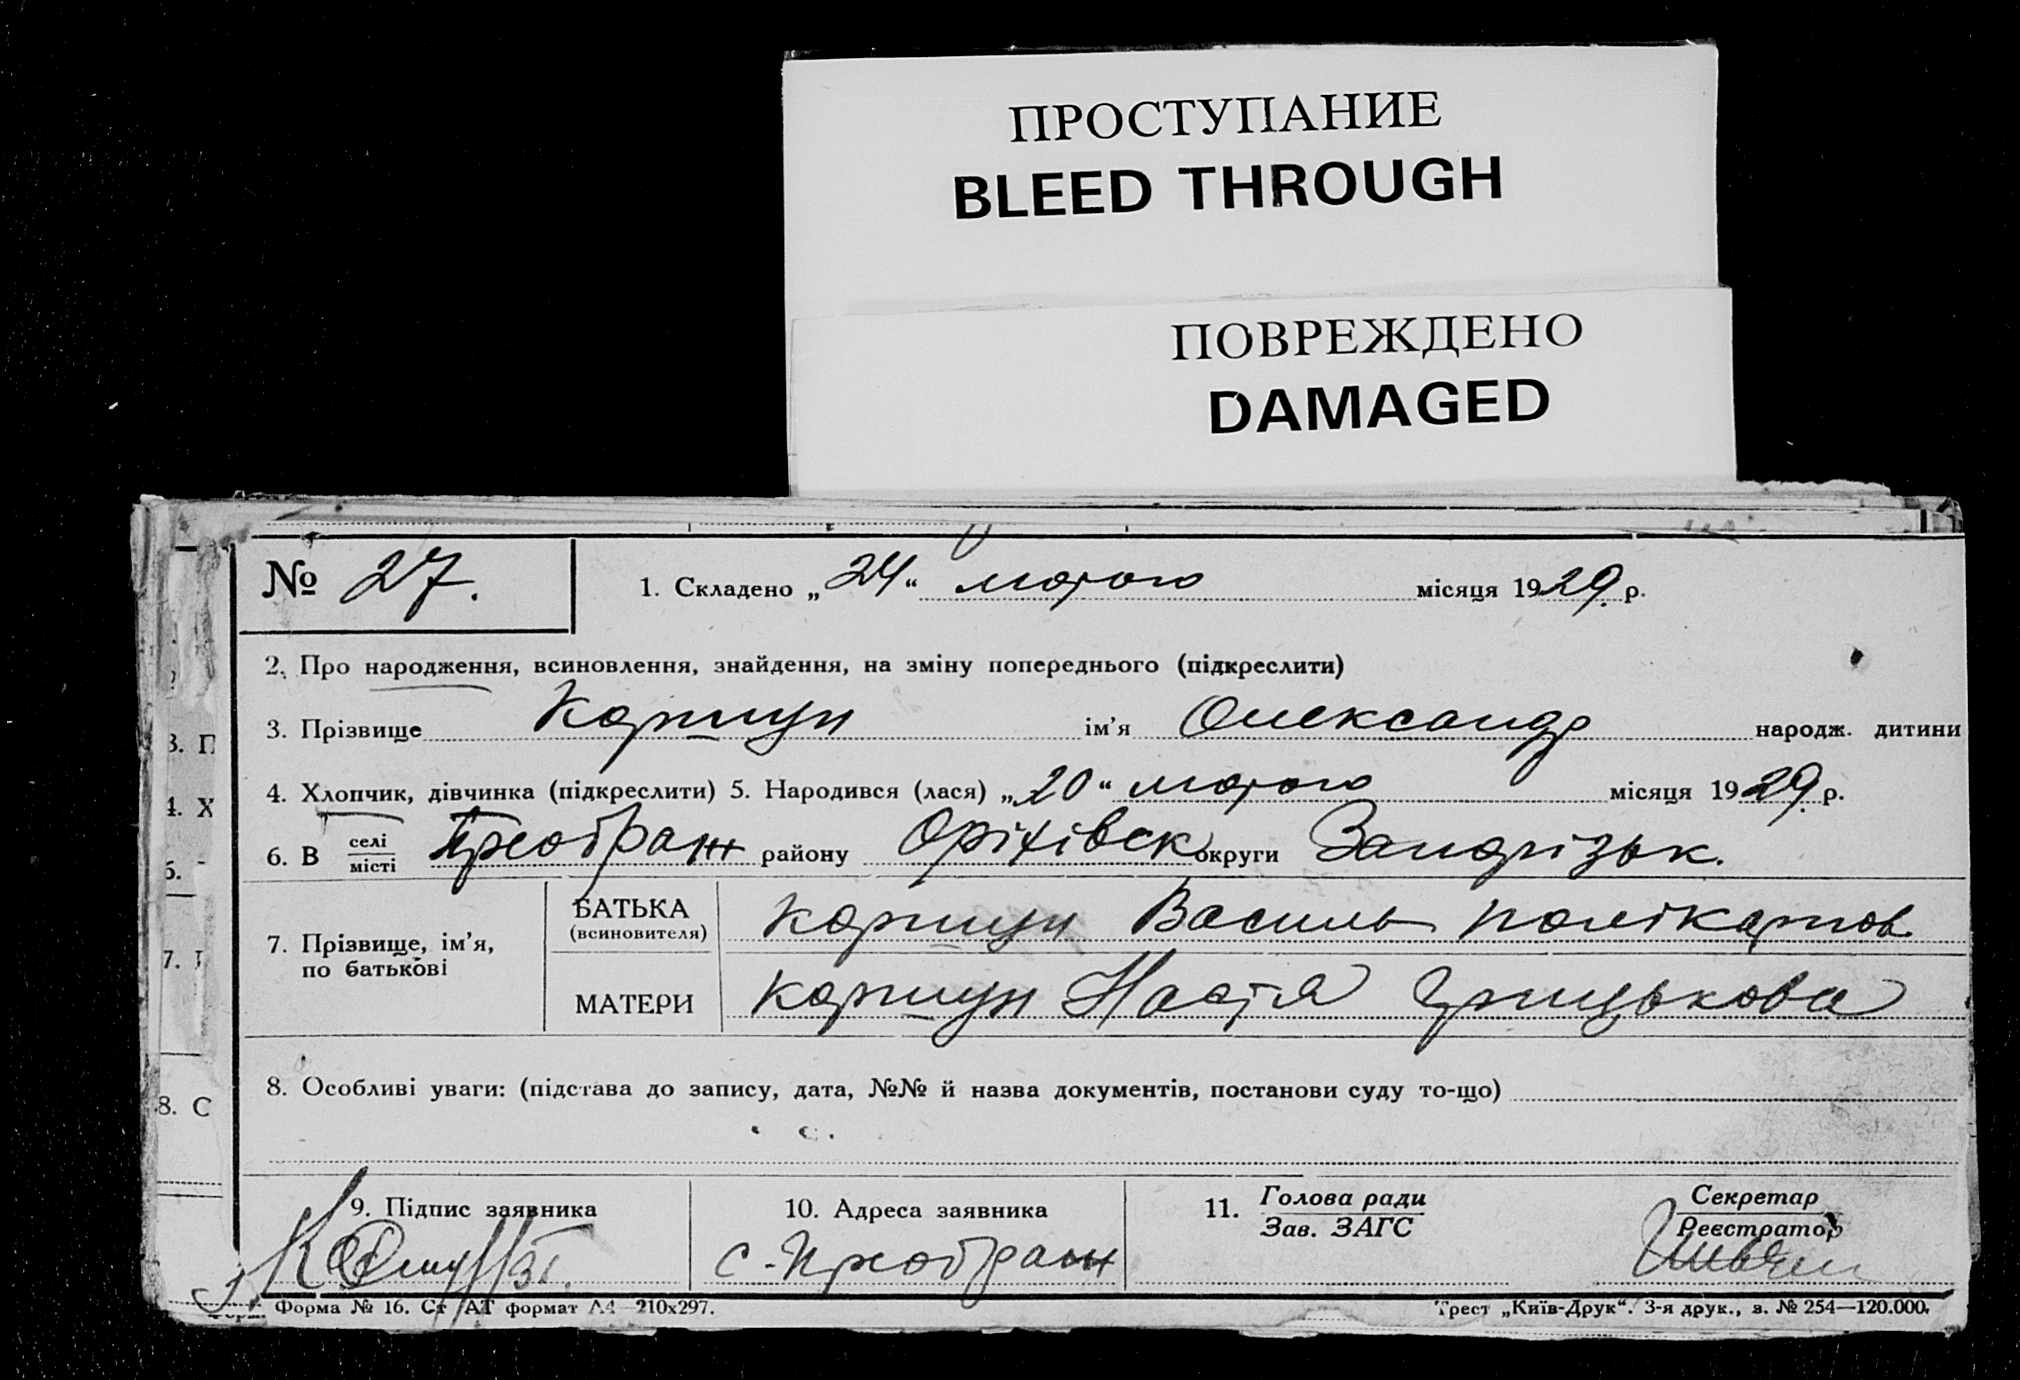 ПРОСТУПАНИЕ
BLEED THROUGH
ПОВРЕЖДЕНО
DAMAGED
№ 27. 1. Складено „24“ лютого місяця 1929 р.
2. Про народження, всиновлення, знайдення, на зміну попереднього (підкреслити)
3. Прізвище Коршун ім’я Олександр народж. дитини
4. Хлопчик, дівчинка (підкреслити) 5. Народився (лася) „20“ лютого місяця 1929 р.
6. В селі/місті Преображ району Оріхівськ округи Запоріжьк.
7. Прізвище, ім’я, по батькові
БАТЬКА (всиновителя) Коршун Василь Полікарпов
МАТЕРИ Коршун Настя Грицькова
8. Особливі уваги: (підстава до запису, дата, №№ й назва документів, постанови суду то-що)
9. Підпис заявника 10. Адреса заявника 11. Голова ради Секретар
Зав. ЗАГС Реєстратор
с. Преображ
Форма № 16. Ст АТ формат А4—210х297. Трест „Київ-Друк“. 3-я друк., з. № 254—120.000.